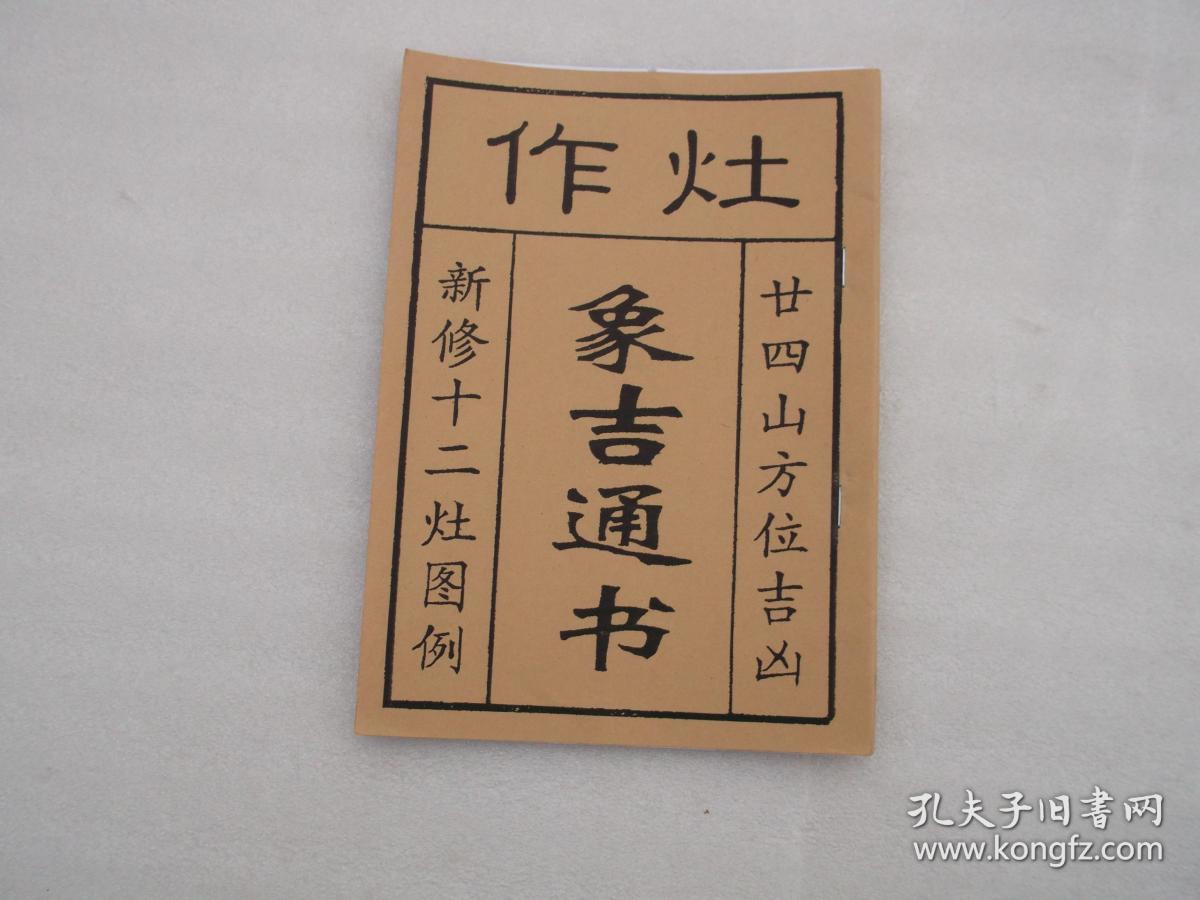 作灶
廿四山方位吉凶
象吉通书
新修十二灶图例
孔夫子旧書网
www.kongfz.com